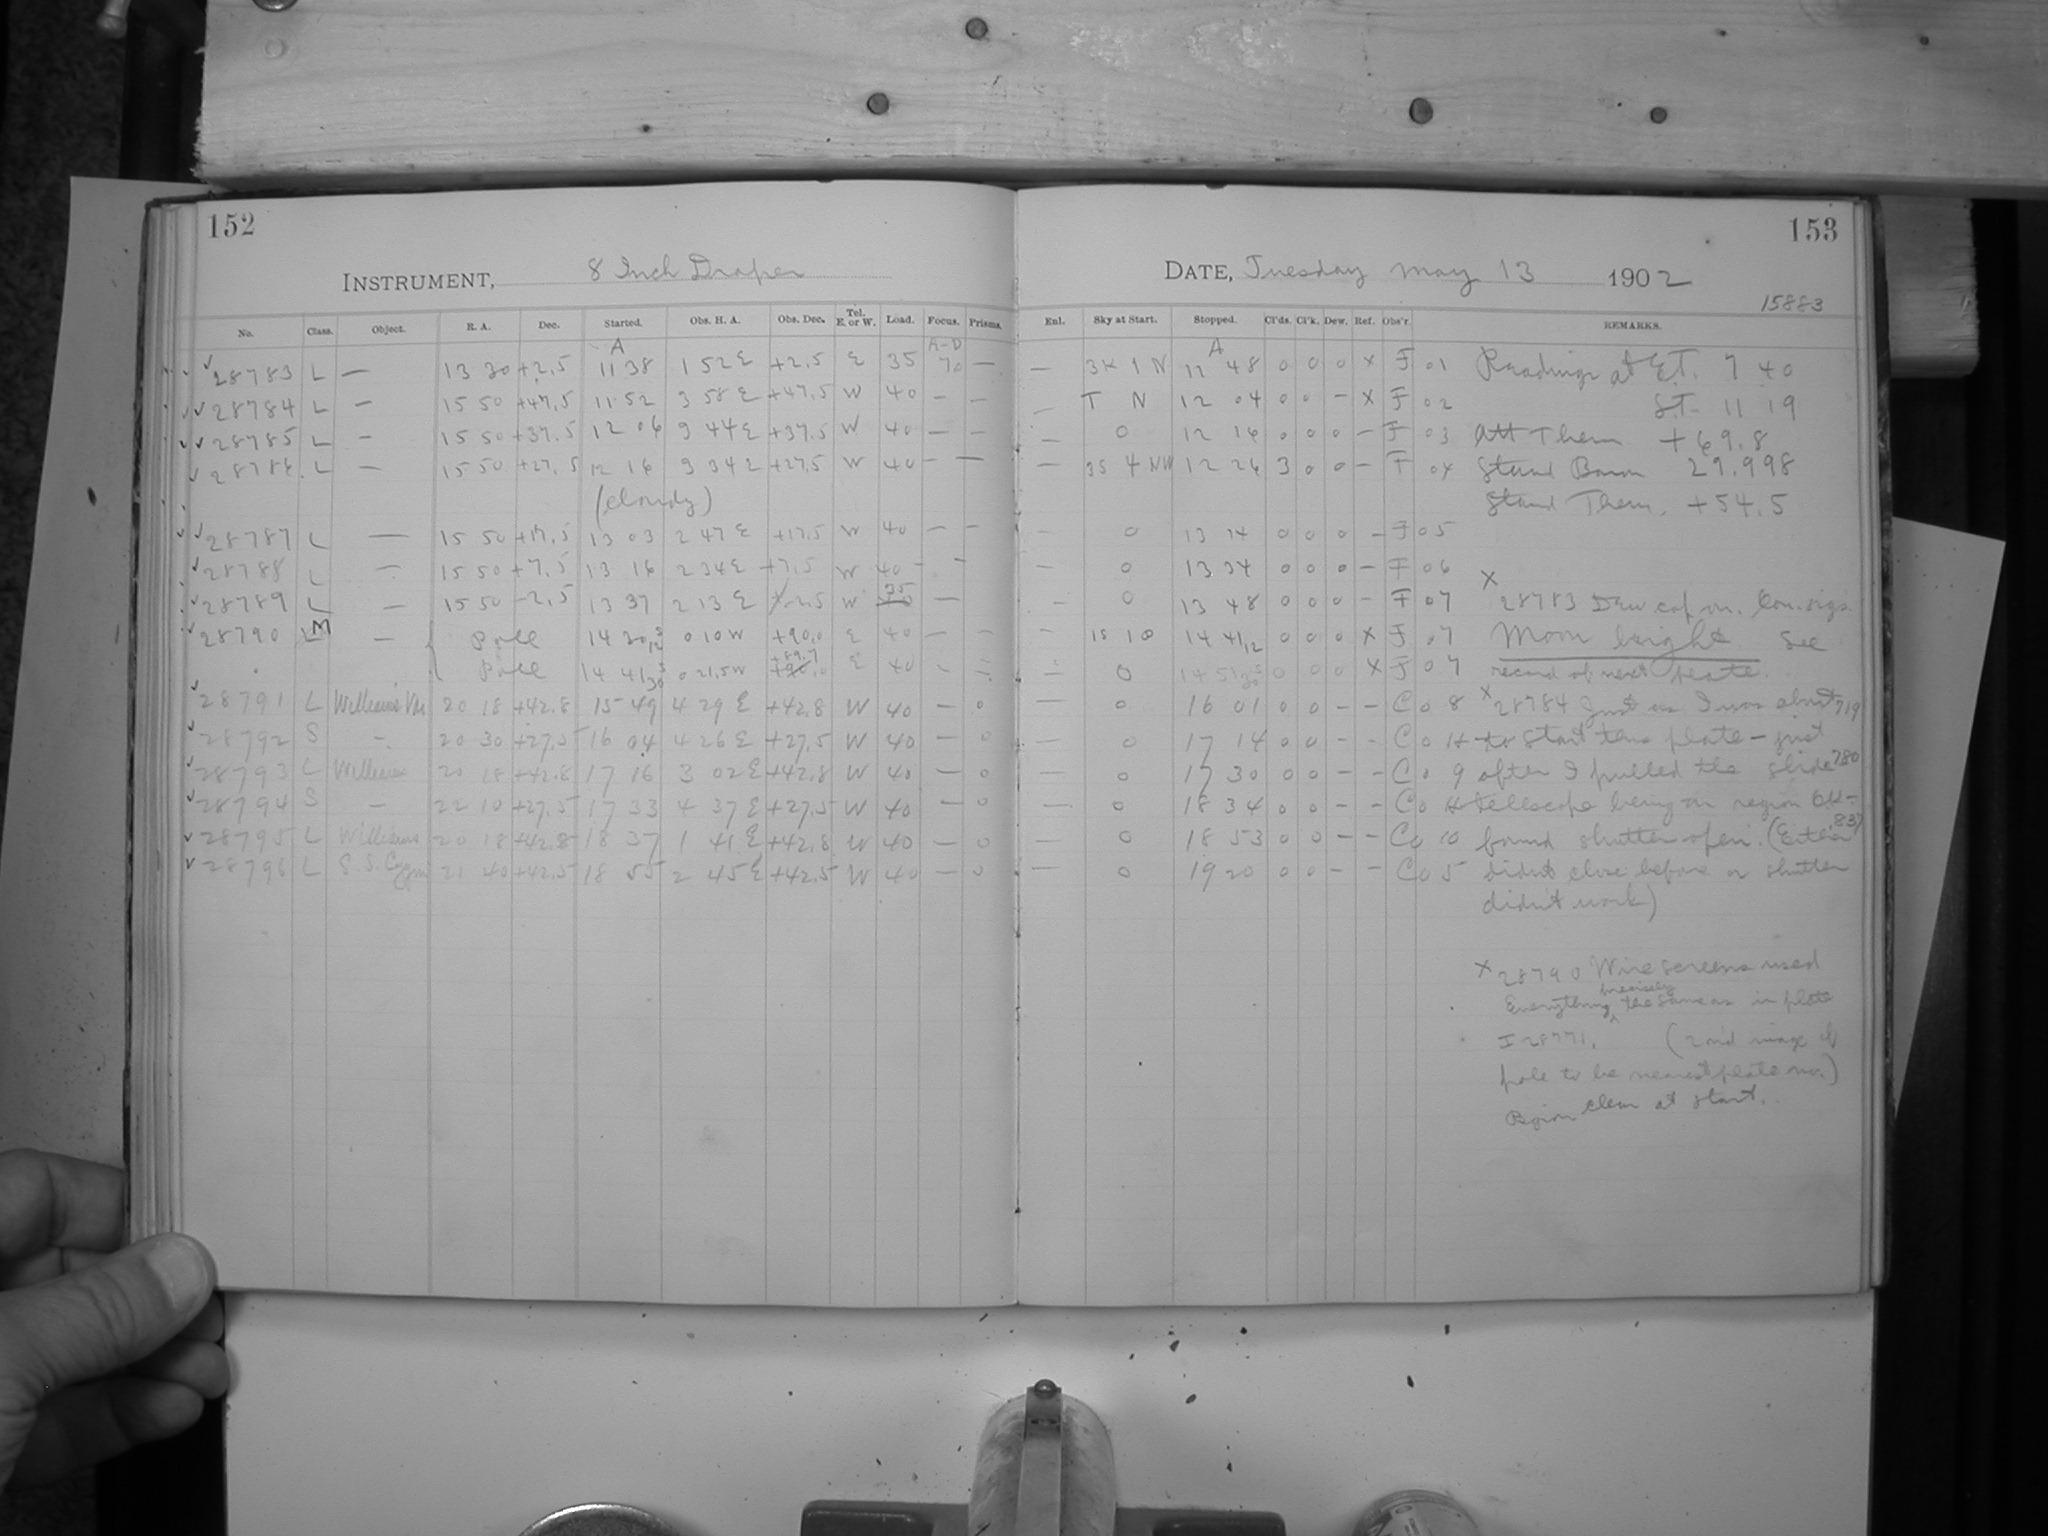 152
INSTRUMENT, 8 Inch Draper
No. Class. Object. R. A. Dec. Started. Obs. H. A. Obs. Dec. Tel. E. or W. Load. Focus. Prisms.
A A-D
28783 L — 13 30 +2.5 11 38 1 52 E +2.5 E 35 70 —
28784 L — 15 50 +47.5 11 52 3 58 E +47.5 W 40 — —
28785 L — 15 50 +37.5 12 06 3 44 E +37.5 W 40 — —
28786 L — 15 50 +27.5 12 16 3 34 E +27.5 W 40 — —
(Cloudy)
28787 L — 15 50 +17.5 13 03 2 47 E +17.5 W 40 — —
28788 L — 15 50 +7.5 13 16 2 34 E +7.5 W 40 — —
28789 L — 15 50 -2.5 13 37 2 13 E -2.5 W 35 —
28790 M — Pole 14 20 0 10 W +90.0 E 40 — —
Pole 14 41 0 21.5 W +89.7 E 40 — —
28791 L Williams Var 20 18 +42.8 15 49 4 29 E +42.8 W 40 — 0
28792 S — 20 30 +27.5 16 04 4 26 E +27.5 W 40 — 0
28793 L Williams 20 18 +42.8 17 16 3 02 E +42.8 W 40 — 0
28794 S — 22 10 +27.5 17 33 4 37 E +27.5 W 40 — 0
28795 L Williams 20 18 +42.8 18 37 1 41 E +42.8 W 40 — 0
28796 L S.S. Cygni 21 40 +42.5 18 55 2 45 E +42.5 W 40 — 0
153
DATE, Tuesday May 13 1902
15883
Enl. Sky at Start. Stopped. Cl'ds. Cl'k. Dew. Ref. Obs'r. REMARKS.
A
— 1 N 11 48 0 0 0 x F 01 Readings at E.T. 7 40
— T N 12 04 0 0 — x F 02 S.T. 11 19
— 0 12 16 0 0 0 — F 03 Att Them +69.8
— 35 4 NW 12 26 3 0 0 — F 04 Stand Barom 29.998
Stand Them. +54.5
— 0 13 14 0 0 0 — F 05
— 0 13 34 0 0 0 — F 06
— 0 13 48 0 0 0 — F 07 x 28783 Dew cap on.
— 1s 10 14 41 12 0 0 0 x F 07 Moon bright See
— 0 14 51 0 0 0 x F 07 record of next plate.
0 16 01 0 0 — — C 0 8 x 28784 Just as I was about 719
— 0 17 14 0 0 — — C 0 H to start this plate — just
0 17 30 0 0 — — C 0 9 after I pulled the slide 780
— 0 18 34 0 0 — — C 0 H telescope being in region
— 0 18 53 0 0 — — C 0 10 found shutter open. (Either 83)
— 0 19 20 0 0 — — C 0 5 didn't close before or shutter
didn't work)
x 28790 Wire screens used
Everything precisely the same as in plate
I 28771. (2nd image of
pole to be nearest plate no.)
clear at start.